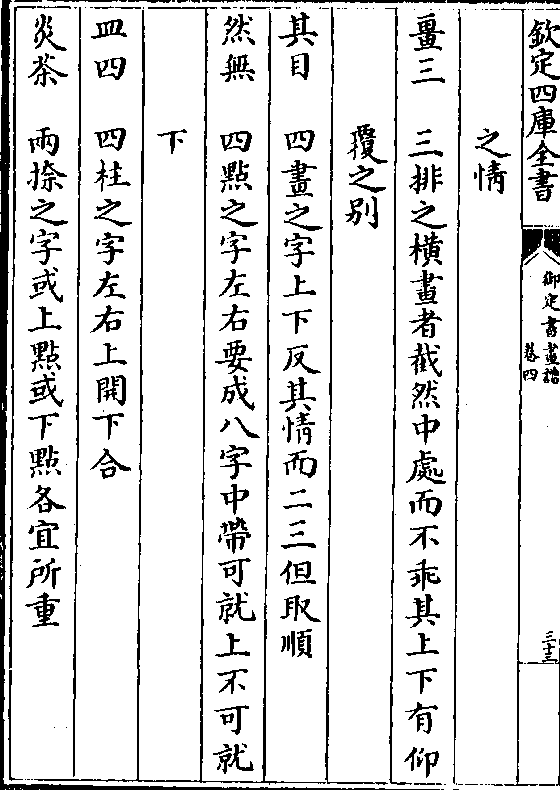 欽定四庫全書
御定書畫譜
卷四
三十三
之情
畺三　三排之橫畫者截然中處而不乖其上下有仰
覆之别
其目　四畫之字上下反其情而二三但取順
然無　四點之字左右要成八字中帶可就上不可就
下
皿四　四柱之字左右上開下合
炎茶　兩捺之字或上點或下點各宜所重